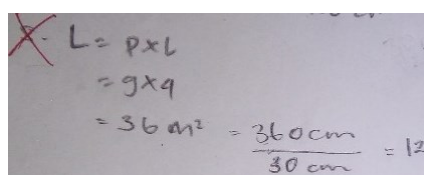 L = p x l
= 9 x 4
= 36 m² = 360 cm / 30 cm = 12